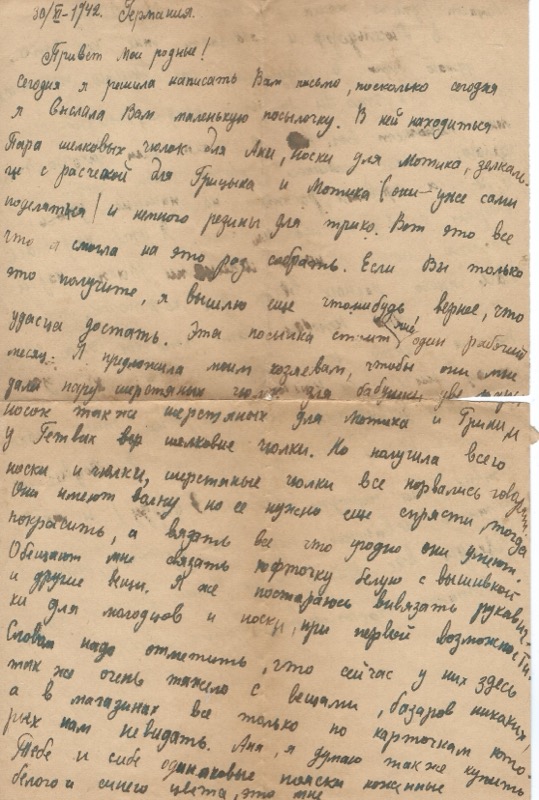 30/XI-1942. Германия.
Привет мои родные!
Сегодня я решила написать Вам письмо, поскольку сегодня
я выслала Вам маленькую посылочку. В ней находиться
Пара шелковых чюлок для Ани, носки для Мотика, зелкаль-
це с расческой для Грицыка и Мотика (они уже сами
поделяться) и немного редины для трико. Вот это все
что я смогла на это раз собрать. Если Вы только
это получите, я вышлю еще чтонибудь вернее, что
удасца достать. Эта посылка стоит мне один рабочий
месяц. Я предложила моим хозяевам, чтобы они мне
дали пару шерстяных чюлок для бабушки, две пары
носок так же шерстяных для Мотика и Гриши
у шелковие чюлки. Но получила всего
носки и чюлки, шерстяные чюлки все порвались говорят
Они имеют волну но ее нужно еще спрясти, тогда
покрасить, а вязать все что угодно они умеют.
Обещают мне связать кофточку белую с вышивкой
и другие вещи. Я же постараюсь вивязать рукавич-
ки для молодцов и носки, при первой возможности.
Словом надо отметить, что сейчас у них здесь
так же очень тяжело с вещами, базаров никаких,
а в магазинах все только по карточкам кото-
рых нам невидать. Аня, я думаю так же купить
Тебе и себе одинаковые пояски кожанные
белого и синего цвета, это мне